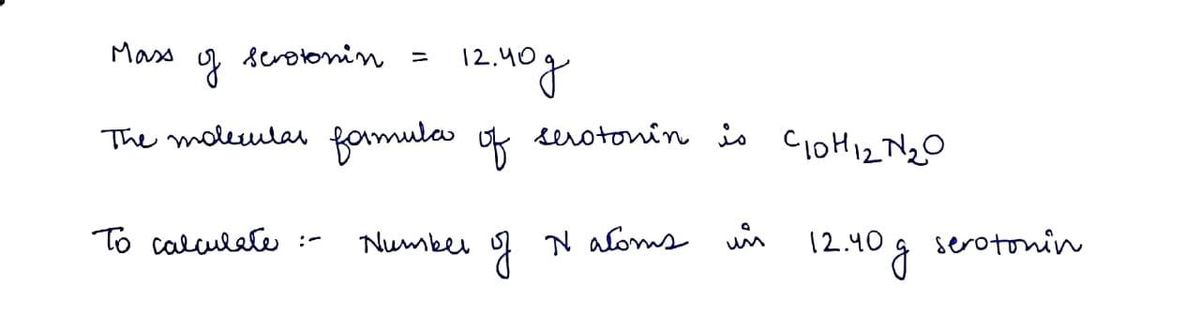 Mass of serotonin = 12.40g
The molecular formula of serotonin is C10H12N2O
To calculate :- Number of N atoms in 12.40 g serotonin